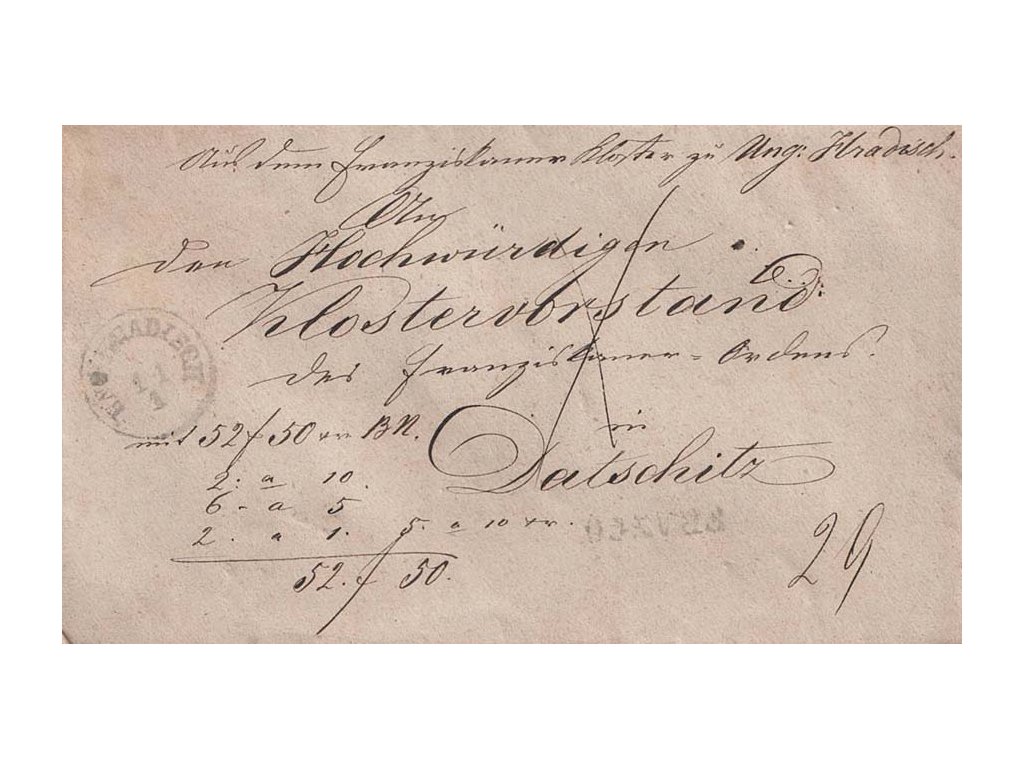 Aus dem Franziskaner Kloster zu Ung: Hradisch.
An
den Hochwürdigen
Klostervorstand
des Franziskaner-Ordens.
in
Datschitz
HRADISCH
mit 52 f 50 xr BN.
2. a 10.
6 - a 5
2. a 1. 5. a 10 xr.
52. f 50.
29